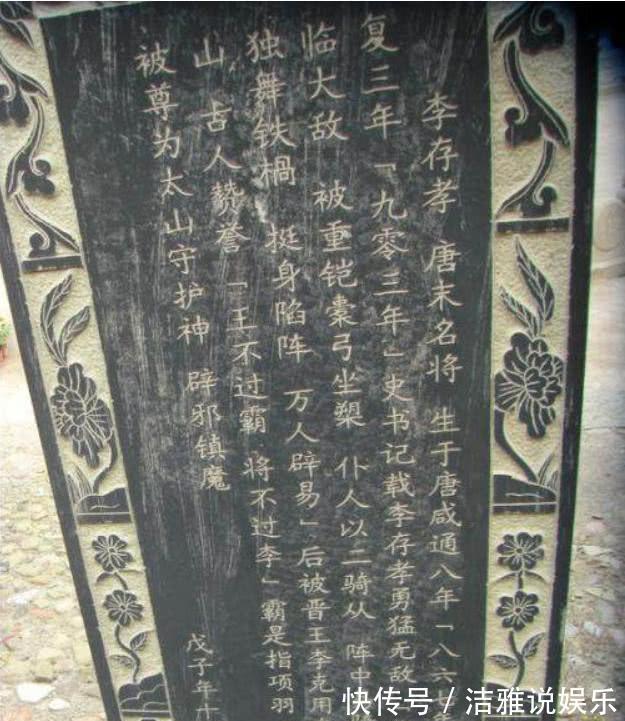 李存孝 唐末名将 生于唐咸通八年「八六七年
复三年「九零三年」史书记载李存孝勇猛无敌
临大敌 被重铠橐弓坐槊 仆人以二骑从 阵中
独舞铁楇 挺身陷阵 万人辟易」后被晋王李克用
山 古人赞誉「王不过霸 将不过李」霸是指项羽
被尊为太山守护神 辟邪镇魔
戊子年十
快传号/洁雅说娱乐